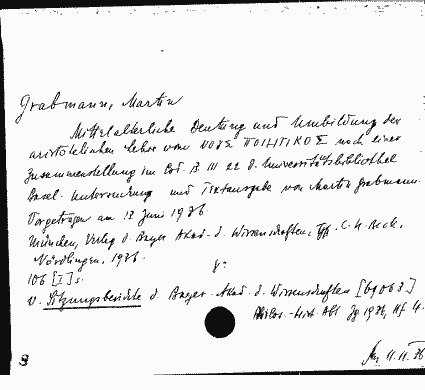 Grabmann, Martin
Mittelalterliche Deutung und Umbildung der
aristotelischen Lehre vom ΝΟΥΣ ΠΟΙΗΤΙΚΟΣ nach einer
Zusammenstellung im Cod. B III 22 d. Universitätsbibliothek
Basel. Untersuchung und Textausgabe von Martin Grabmann.
Vorgetragen am 13 Juni 1936.
München, Verlag d. Bayer Akad. d. Wissenschaften, C. H. Beck,
Nördlingen, 1936.
106 [I] s. 8°
v. Sitzungsberichte d. Bayer. Akad. d. Wissenschaften [69063]
Philos.-hist. Abt. Jg 1936, Hf 4.
11.11.36